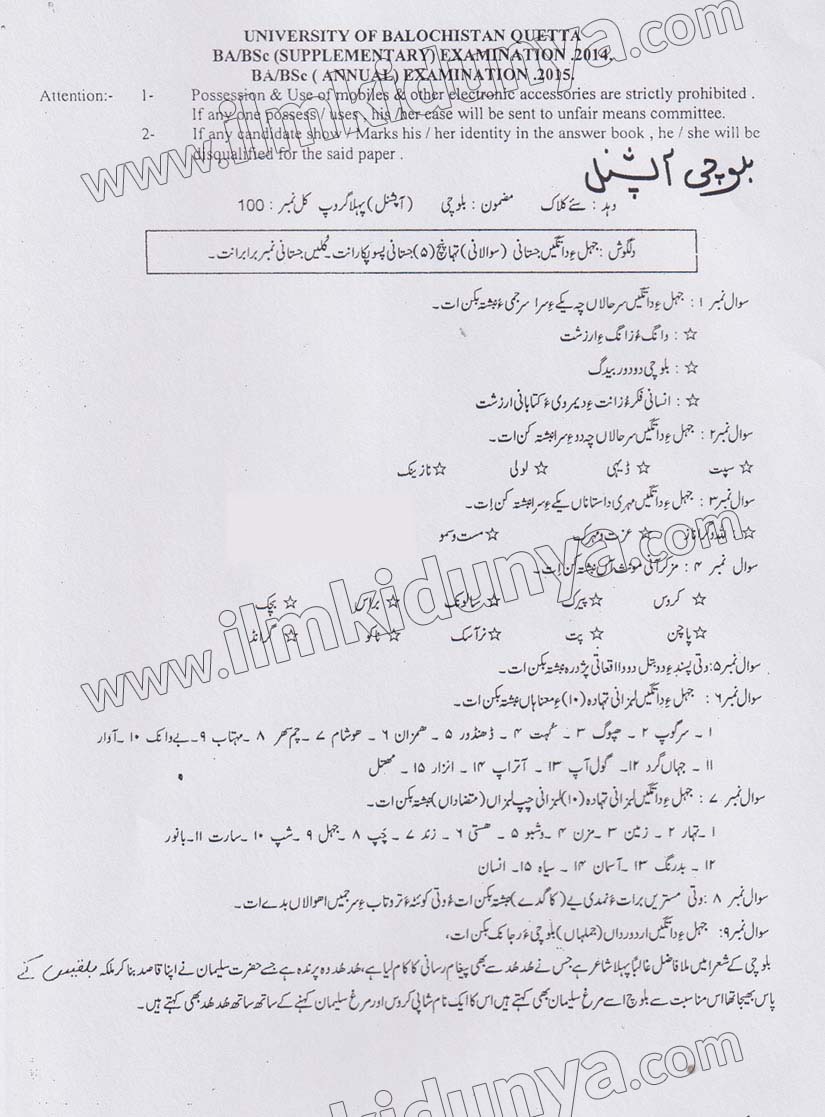 UNIVERSITY OF BALOCHISTAN QUETTA
BA/BSc (SUPPLEMENTARY) EXAMINATION .2014.
BA/BSc ( ANNUAL) EXAMINATION .2015.
Attention:- 1- Possession & Use of mobiles & other electronic accessories are strictly prohibited .
If any one possess / uses , his /her case will be sent to unfair means committee.
2- If any candidate show / Marks his / her identity in the answer book , he / she will be
disqualified for the said paper .
بلوچی آپشنل
وہد : سئے کلاک مضمون : بلوچی (آپشنل) پہلا گروپ کل نمبر : 100
دلگوش : جہل ءِ داتگیں جستانی (سوالانی) تہا پنچ (۵) جستانی پسو پکار انت ۔ کُلیں جستانی نمبر برابر انت ۔
سوال نمبر ۱ : جہل ءِ داتگیں سرحالاں چہ یکے ءِ سرا سرجمی ءَ نبشتہ بکن ات ۔
☆ : وانگ ءُ زانگ ءِ ارزشت
☆ : بلوچی دود ور بیدگ
☆ : انسانی فکر ءُ زانت ءِ دیمروی ءَ کتابانی ارزشت
سوال نمبر ۲ : جہل ءِ داتگیں سرحالاں چہ دو ءِ سرا نبشتہ کن ات ۔
☆ سپت ☆ ڈیہی ☆ لولی ☆ نازینک
سوال نمبر ۳ : جہل ءِ داتگیں مہری داستاناں یکے ءِ سرا نبشتہ کن اِت ۔
☆ للہ و گراناز ☆ عزت و مہرک ☆ مست و سمو
سوال نمبر ۴ : مزکر آنی مونث آں نبشتہ کن اِت ۔
☆ کروس ☆ پیرک ☆ سالونک ☆ براس ☆ بچک
☆ پاچن ☆ پت ☆ نر آسک ☆ ناکو ☆ گرانڈ
سوال نمبر ۵ : وتی پسند ءِ دو بتل دود ا اقعاتی پژدرہ نبشتہ بکن ات ۔
سوال نمبر ۶ : جہل ءِ داتگیں لبزانی تہا دہ (۱۰) ءِ معنا ہاں نبشتہ بکن ات ۔
۱ ۔ سرگوپ ۲ ۔ ھپوگ ۳ ۔ ثہت ۴ ۔ ڈھنڈور ۵ ۔ ھمزان ۶ ۔ ھوشام ۷ ۔ چم سھر ۸ ۔ مہتاب ۹۔ بے وانک ۱۰ ۔ آوار
۱۱ ۔ جہاں گرد ۱۲۔ گول آپ ۱۳ ۔ آتراپ ۱۴ ۔ انزار ۱۵ ۔ مھتل
سوال نمبر ۷ : جہل ءِ داتگیں لبزانی تہا دہ (۱۰) لبزانی چپ لبزاں (متضاداں) نبشتہ بکن ات ۔
۱ ۔ تہار ۲ ۔ زمین ۳ ۔ مزن ۴ ۔ وشبو ۵ ۔ ھستی ۶ ۔ زند ۷ ۔ چَپ ۸ ۔ جہل ۹ ۔ شپ ۱۰ ۔ سارت ۱۱۔ بانور
۱۲ ۔ بدرنگ ۱۳ ۔ آسمان ۱۴ ۔ سیاہ ۱۵ ۔ انسان
سوال نمبر ۸ : وتی مستریں برات ءَ نمدی بے (کاگدے) نبشتہ بکن ات ءُ وتی کوئٹہ ءَ تر و تاب ءِ سرجمیں احوالاں بدے ات ۔
سوال نمبر ۹ : جہل ءِ داتگیں اردو رداں (جملہاں) بلوچی ءَ رجانک بکن ات ،
بلوچی کے شعرا میں ملا فاضل غالباً پہلا شاعر ہے جس نے ھُد ھُد سے بھی پیغام رسانی کا کام لیا ہے، ھُد ھُد وہ پرندہ ہے جسے حضرت سلیمان نے اپنا قاصد بنا کر ملکہ بلقیس کے
پاس بھیجا تھا اس مناسبت سے بلوچ اسے مرغ سلیمان بھی کہتے ہیں اس کا ایک نام شاہی کروس اور مرغ سلیمان کہنے کے ساتھ ساتھ ھُد ھُد بھی کہتے ہیں ۔
www.ilmkidunya.com
www.ilmkidunya.com
www.ilmkidunya.com